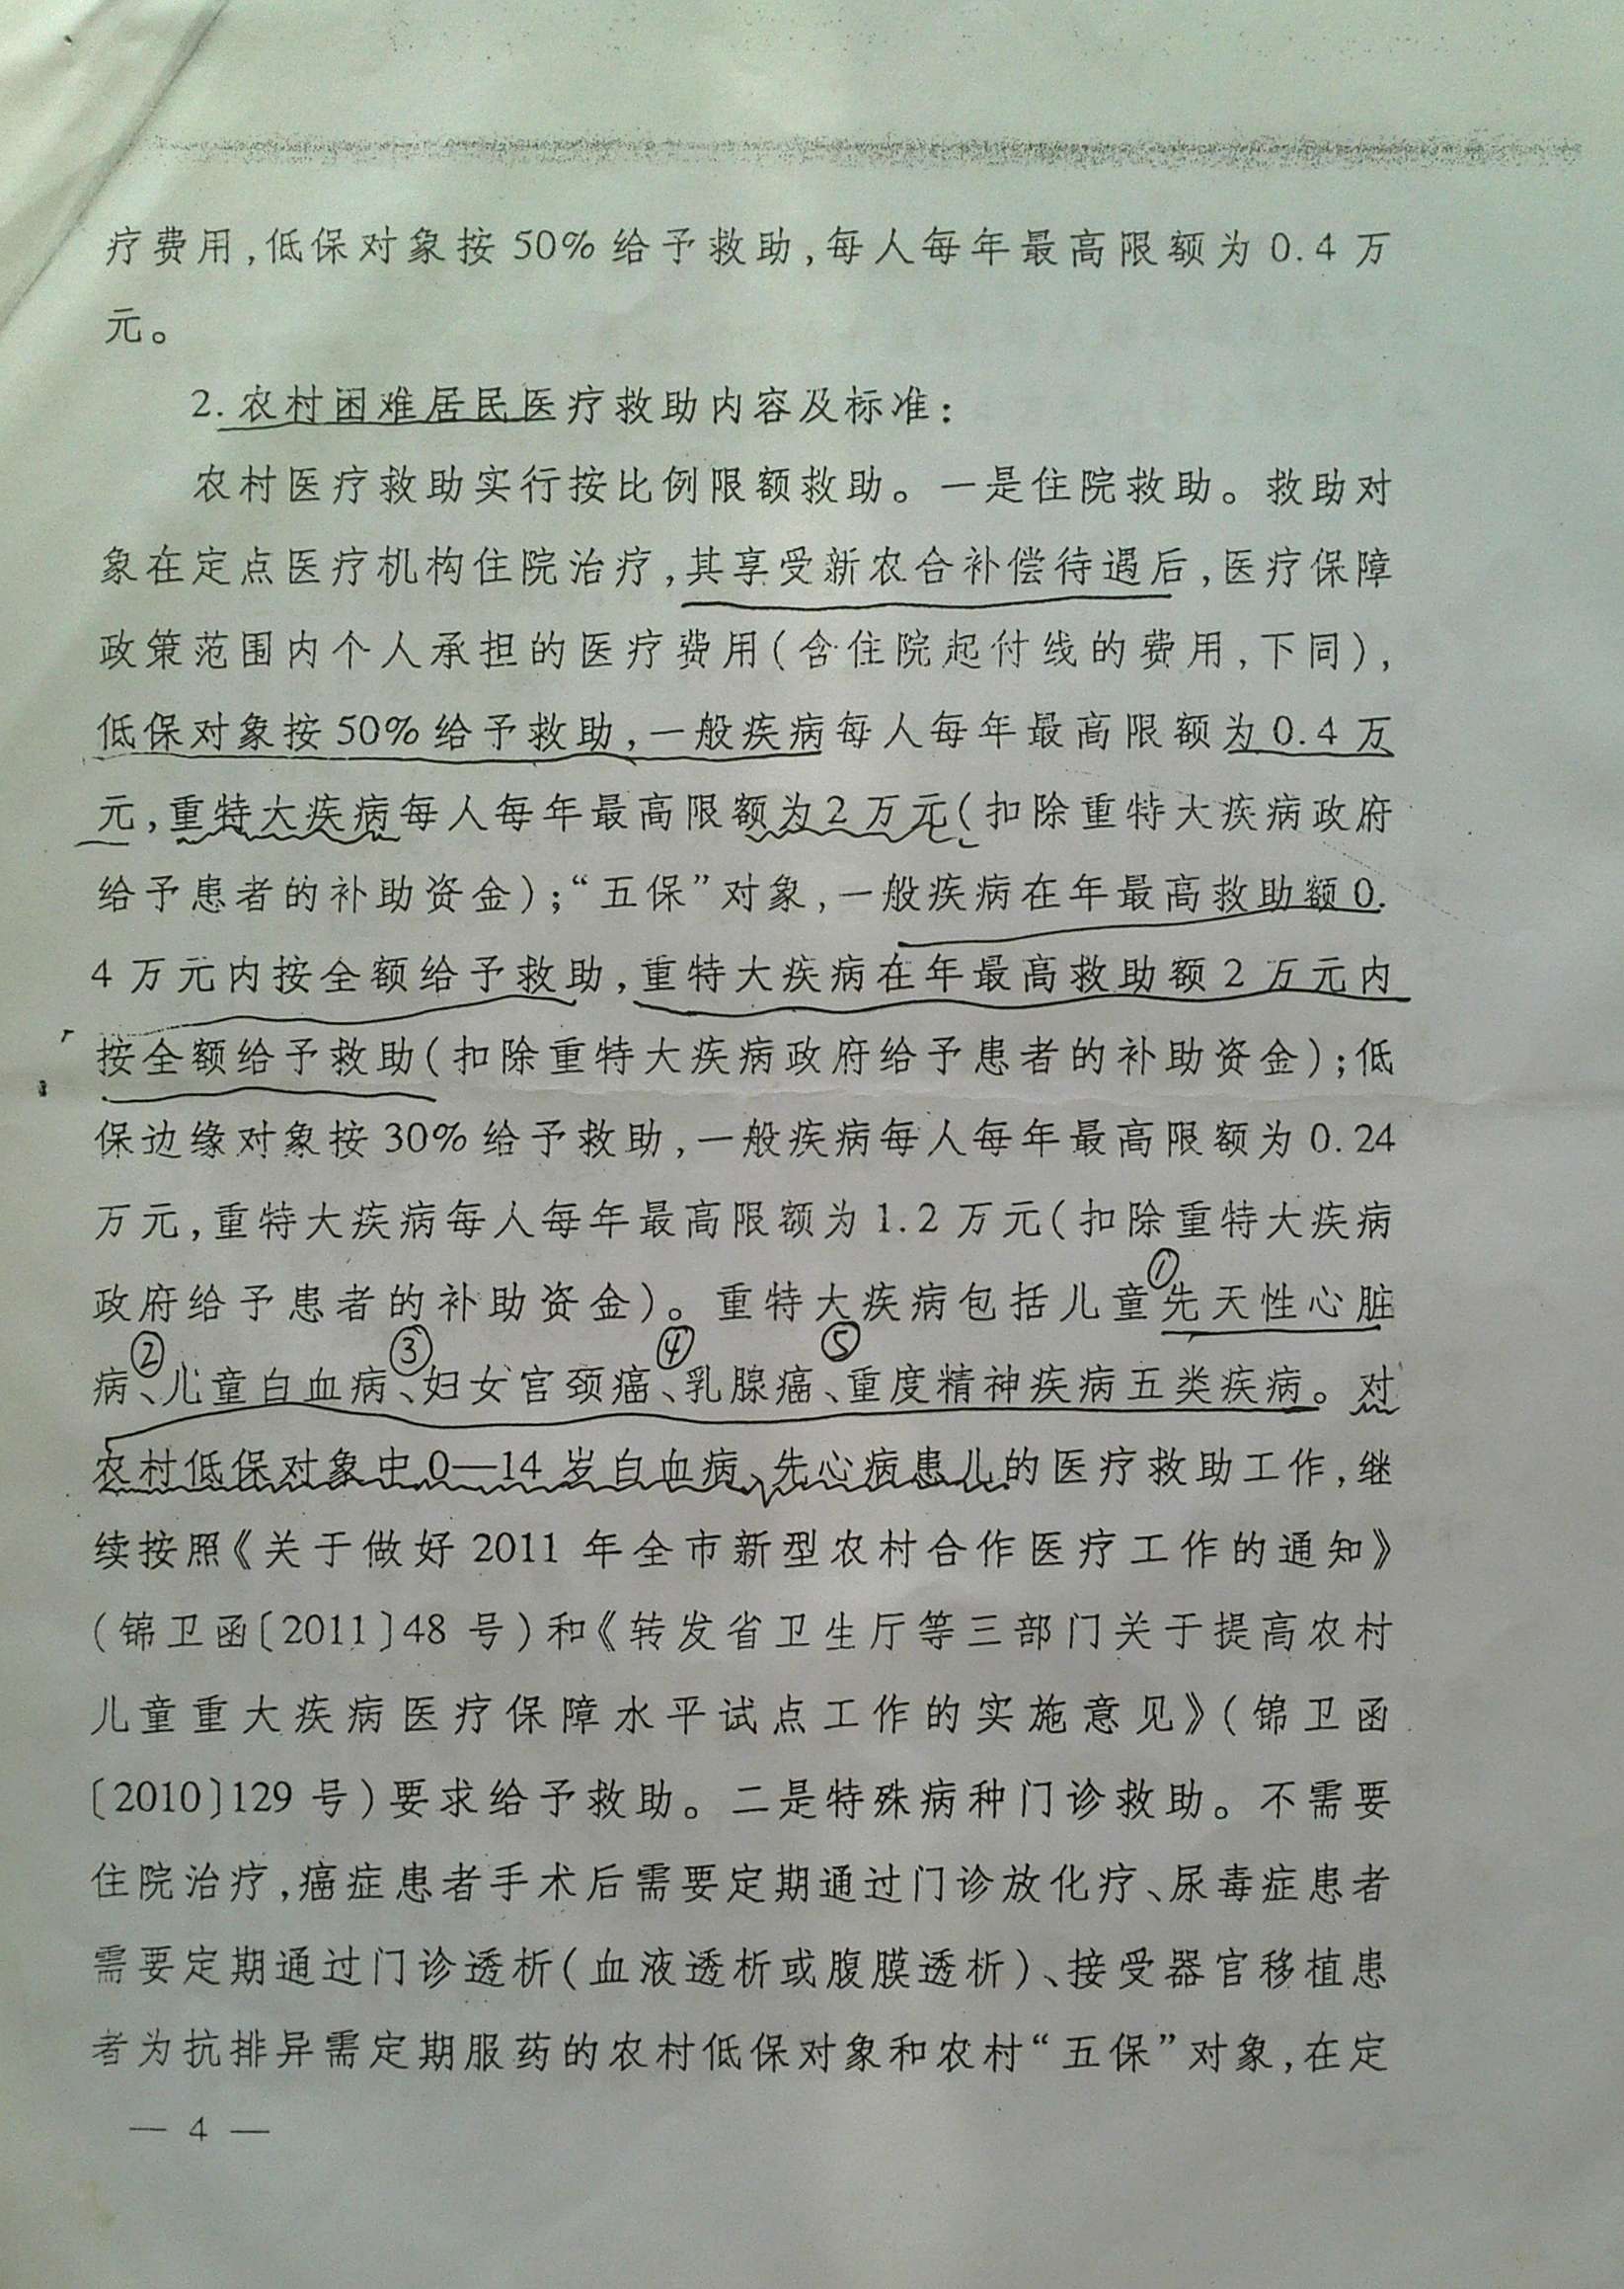 疗费用,低保对象按50%给予救助,每人每年最高限额为0.4万
元。
2.农村困难居民医疗救助内容及标准:
农村医疗救助实行按比例限额救助。一是住院救助。救助对
象在定点医疗机构住院治疗,其享受新农合补偿待遇后,医疗保障
政策范围内个人承担的医疗费用(含住院起付线的费用,下同),
低保对象按50%给予救助,一般疾病每人每年最高限额为0.4万
元,重特大疾病每人每年最高限额为2万元(扣除重特大疾病政府
给予患者的补助资金);“五保”对象,一般疾病在年最高救助额0.
4万元内按全额给予救助,重特大疾病在年最高救助额2万元内
按全额给予救助(扣除重特大疾病政府给予患者的补助资金);低
保边缘对象按30%给予救助,一般疾病每人每年最高限额为0.24
万元,重特大疾病每人每年最高限额为1.2万元(扣除重特大疾病
政府给予患者的补助资金)。重特大疾病包括儿童①先天性心脏
病、②儿童白血病、③妇女宫颈癌、④乳腺癌、⑤重度精神疾病五类疾病。对
农村低保对象中0—14岁白血病、先心病患儿的医疗救助工作,继
续按照《关于做好2011年全市新型农村合作医疗工作的通知》
(锦卫函〔2011〕48号)和《转发省卫生厅等三部门关于提高农村
儿童重大疾病医疗保障水平试点工作的实施意见》(锦卫函
〔2010〕129号)要求给予救助。二是特殊病种门诊救助。不需要
住院治疗,癌症患者手术后需要定期通过门诊放化疗、尿毒症患者
需要定期通过门诊透析(血液透析或腹膜透析)、接受器官移植患
者为抗排异需定期服药的农村低保对象和农村“五保”对象,在定
— 4 —